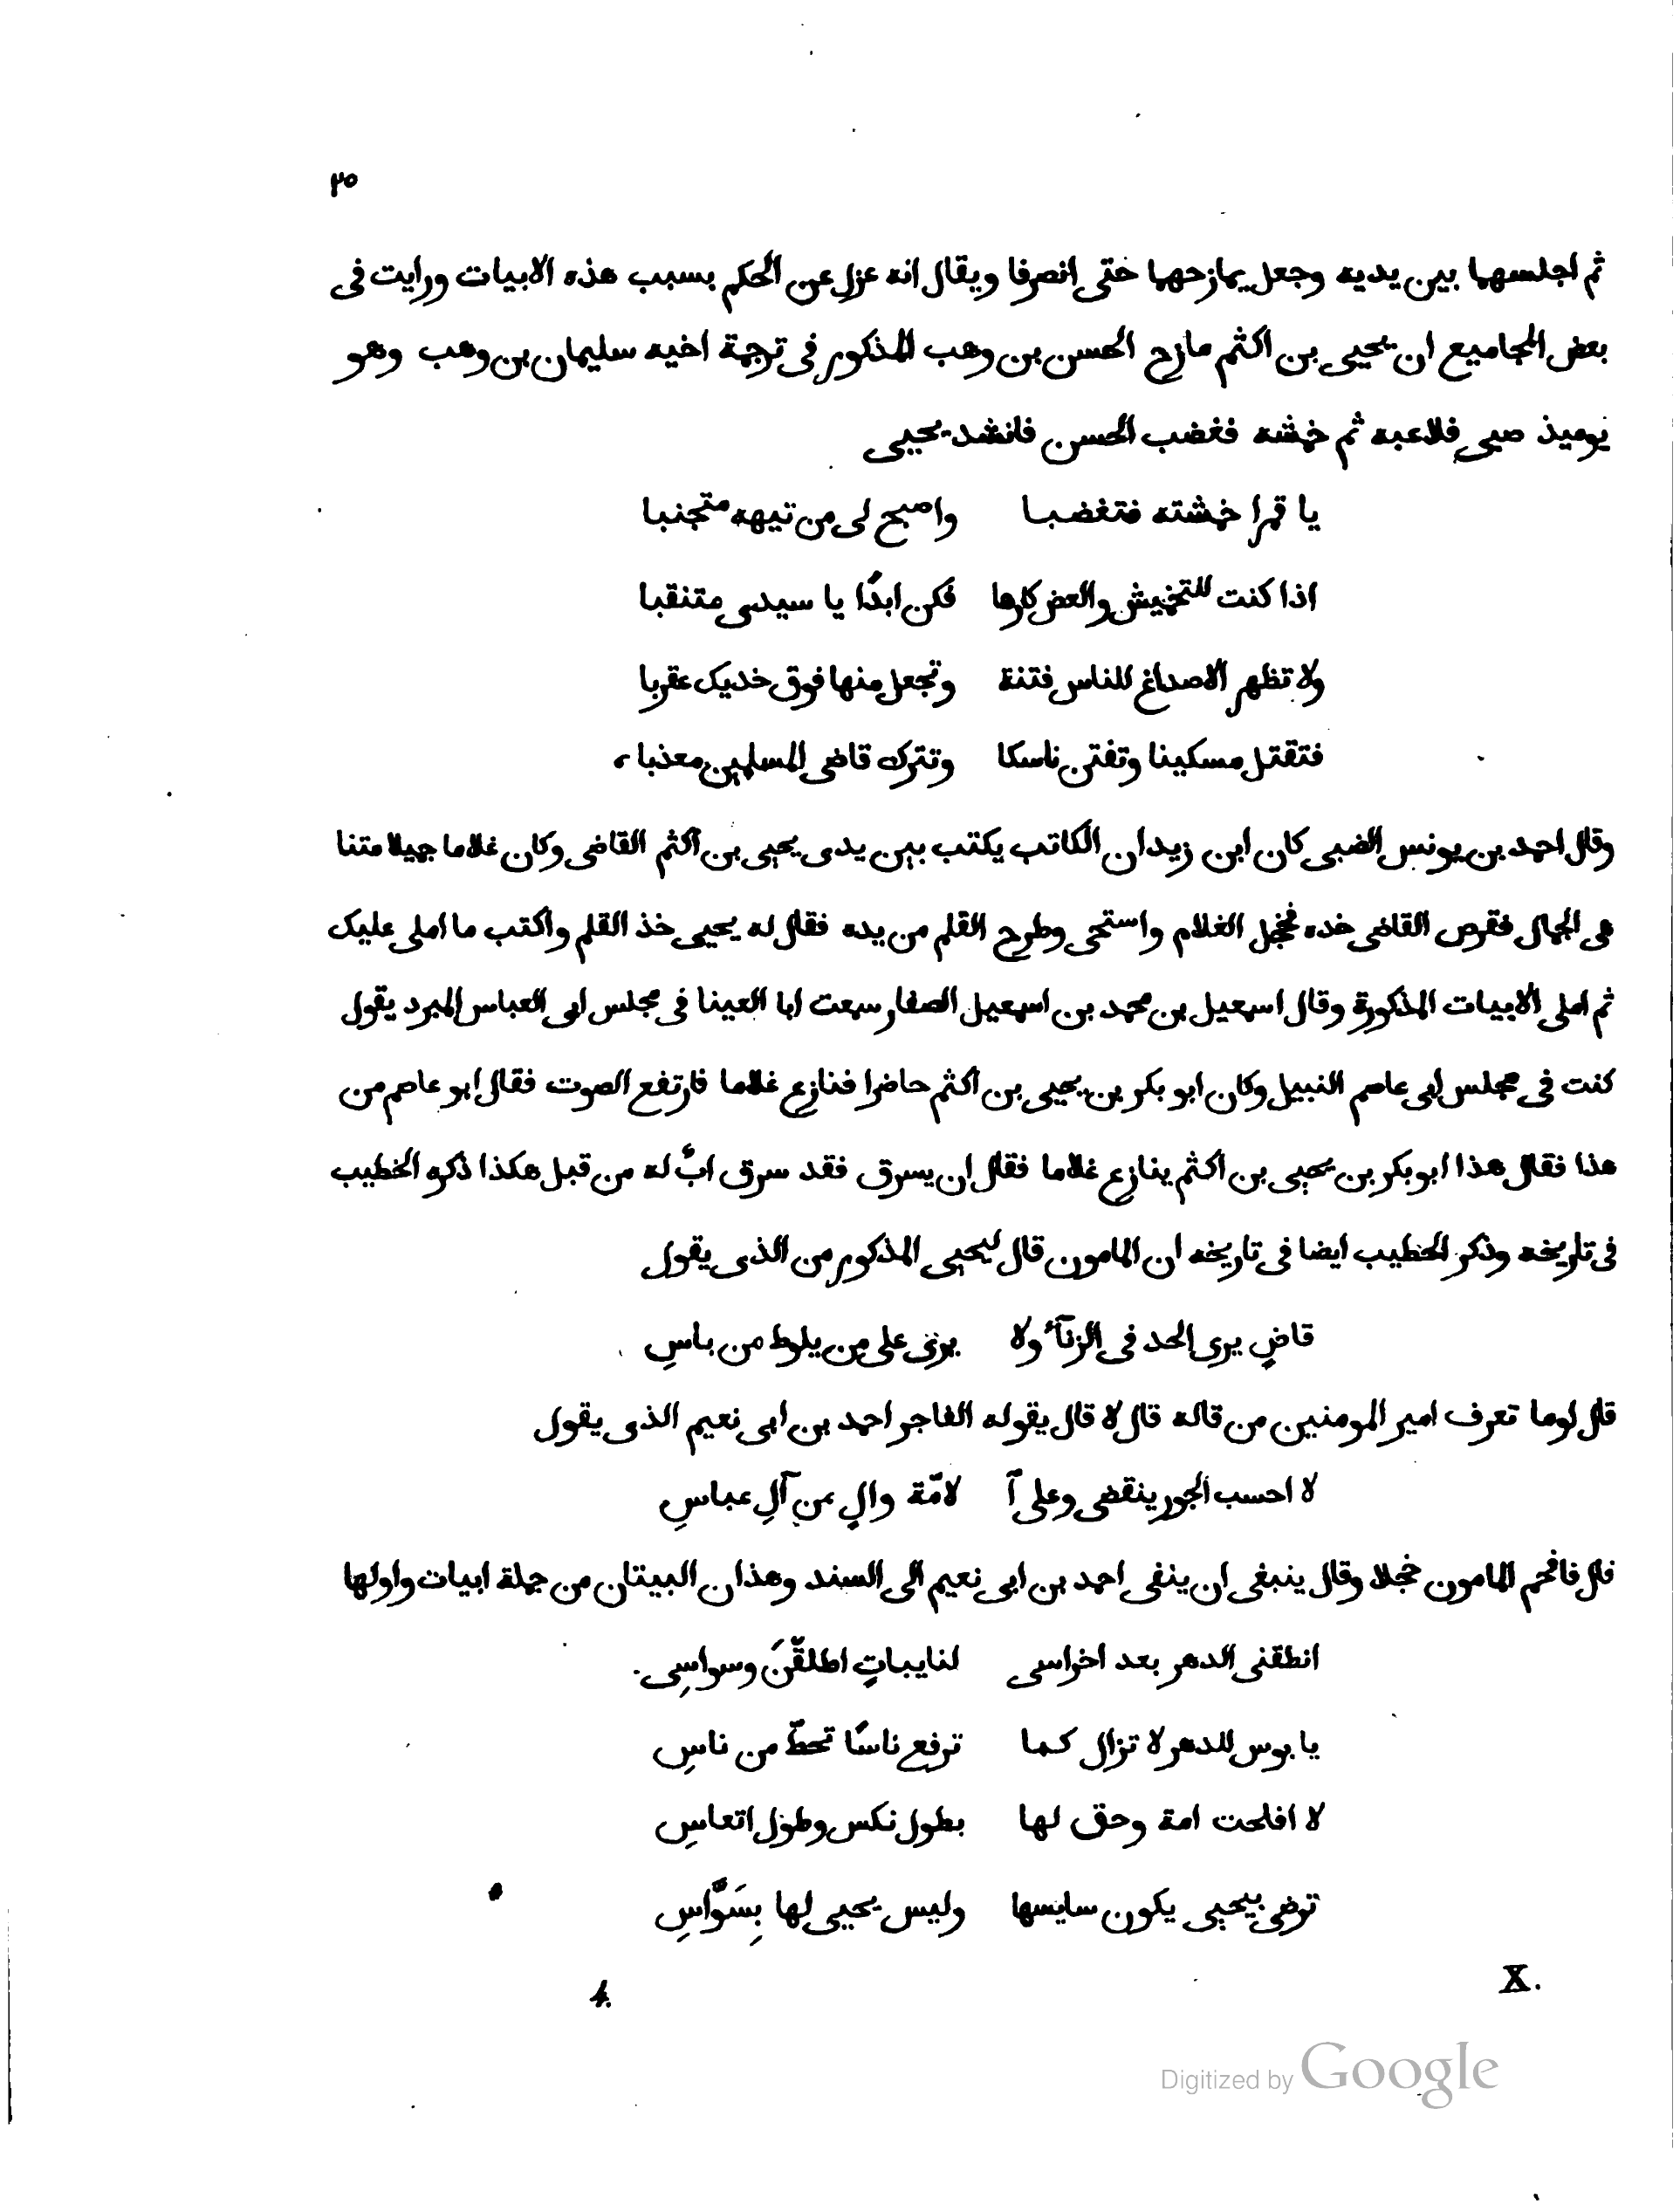 ٢٥
ثم اجلسهما بين يديه وجعل يمازحهما حتى انصرفا ويقال انه عزل عن الحكم بسبب هذه الابيات ورايت فى
بعض المجاميع ان يحيى بن اكثم مازح الحسن بن وهب المذكور فى ترجمة اخيه سليمان بن وهب وهو
يوميذ صبى فلاعبه ثم خمشه فغضب الحسن فانشد يحيى
يا قمرا خمشته فتغضبا واصبح لى من تيهه متجنبا
اذا كنت للتخميش والعض كارها فكن ابدًا يا سيدى متنقبا
ولا تظهر الاصداغ للناس فتنة وتجعل منها فوق خديك عقربا
فتقتل مسكينا وتفتن ناسكا وتترك قاضى المسلمين معذبا
وقال احمد بن يونس الضبى كان ابن زيدان الكاتب يكتب بين يدى يحيى بن اكثم القاضى وكان غلاما جميلا متنا
هى الجمال فقرص القاضى خده فخجل الغلام واستحى وطرح القلم من يده فقال له يحيى خذ القلم واكتب ما املى عليك
ثم املى الابيات المذكورة وقال اسمعيل بن محمد بن اسمعيل الصفار سمعت ابا العينا فى مجلس ابى العباس المبرد يقول
كنت فى مجلس ابى عاصم النبيل وكان ابو بكر بن يحيى بن اكثم حاضرا فنازع غلاما فارتفع الصوت فقال ابو عاصم من
هذا فقال هذا ابو بكر بن يحيى بن اكثم ينازع غلاما فقال ان يسرق فقد سرق ابٌ له من قبل هكذا ذكره الخطيب
فى تاريخه وذكر الخطيب ايضا فى تاريخه ان المامون قال ليحيى المذكور من الذى يقول
قاضٍ يرى الحد فى الزنآء ولا يرى على من يلوط من باسِ
قال لوما تعرف امير المومنين من قاله قال لا قال يقوله الفاجر احمد بن ابى نعيم الذى يقول
لا احسب الجور ينقضى وعلى آ لامّة والٍ من آلِ عباسِ
قال فافحم المامون خجلا وقال ينبغى ان ينفى احمد بن ابى نعيم الى السند وهذان البيتان من جملة ابيات واولها
انطقنى الدهر بعد اخراسى لنايباتٍ اطلقّنَ وسواسِى
يا بوس للدهر لا تزال كما ترفع ناسًا تحطّ من ناسِ
لا افلحت امة وحق لها بطول نكس وطول اتعاسِ
ترضى بيحيى يكون سايسها وليس يحيى لها بِسَوَّاسِ
X. 4.
Digitized by Google